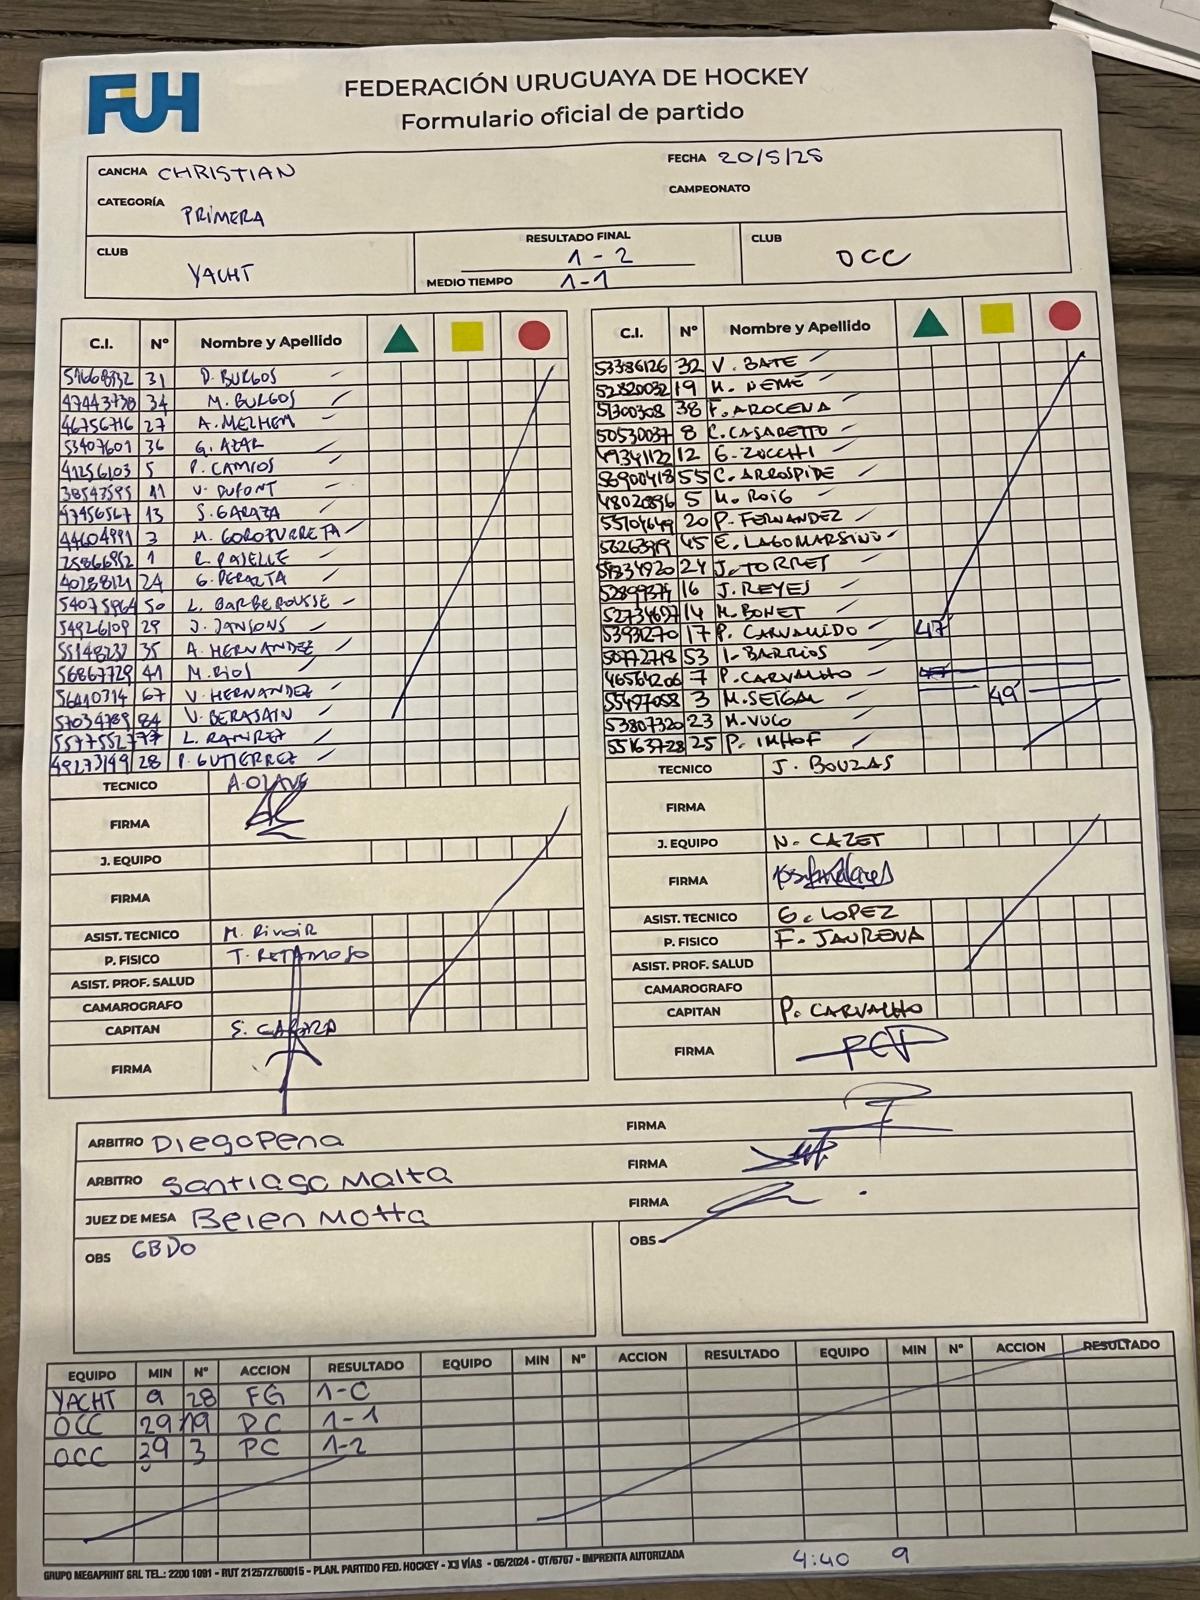 FUH
FEDERACIÓN URUGUAYA DE HOCKEY
Formulario oficial de partido
CANCHA CHRISTIAN FECHA 20/5/25
CATEGORÍA PRIMERA CAMPEONATO
CLUB YACHT
RESULTADO FINAL 1 - 2
MEDIO TIEMPO 1-1
CLUB OCC
C.I. Nº Nombre y Apellido
31 D. BURGOS
47443738 34 M. BURGOS
46756716 27 A. MELHEM
53407601 36 G. AZAR
41256103 5 P. CAMIOS
38543595 11 V. DUPONT
47456567 13 S. GARAZA
44604991 3 M. GOROZURRETA
1
40288121 24 G. PERALTA
54075964 50 L. BARBEROUSSE
54926109 29 J. JANSONS
35 A. HERNANDEZ
56867729 41 M. RIOS
56410314 67 V. HERNANDEZ
57034789 84 V. BERASAIN
L. RAMIREZ
49273149 28 P. GUTIERREZ
TECNICO A. OLAVE
FIRMA
J. EQUIPO
FIRMA
ASIST. TECNICO M. Rivoir
P. FISICO T. RETAMOSO
ASIST. PROF. SALUD
CAMAROGRAFO
CAPITAN S. GARAZA
FIRMA
C.I. Nº Nombre y Apellido
53386126 32 V. BATE
52820032 19 M. DEME
51300308 38 F. AROCENA
50530037 8 C. CASARETTO
49341122 12 G. ZUCCHI
56900418 55 C. ARROSPIDE
48020896 5 M. ROIG
55104649 20 P. FERNANDEZ
45 E. LAGOMARSINO
24 J. TORRET
52899374 16 J. REYES
52734697 14 M. BONET
17 P. CARVALLIDO 47'
53 I. BARRIOS
46564206 7 P. CARVALHO
55497058 3 M. SEIGAL 49'
53807320 23 M. VUCO
55163728 25 P. IMHOF
TECNICO J. BOUZAS
FIRMA
J. EQUIPO N. CAZET
FIRMA
ASIST. TECNICO G. LOPEZ
P. FISICO F. JAURENA
ASIST. PROF. SALUD
CAMAROGRAFO
CAPITAN P. CARVALHO
FIRMA
ARBITRO Diego Pena FIRMA
ARBITRO Santiago Malta FIRMA
JUEZ DE MESA Belen Motta FIRMA
OBS GBDO
OBS
EQUIPO MIN Nº ACCION RESULTADO EQUIPO MIN Nº ACCION RESULTADO EQUIPO MIN Nº ACCION RESULTADO
YACHT 9 28 FG 1-0
OCC 29 19 PC 1-1
OCC 39 3 PC 1-2
GRUPO MEGAPRINT SRL TEL.: 2200 1091 - RUT 212572760015 - PLAN. PARTIDO FED. HOCKEY - X3 VÍAS - 06/2024 - OT/6767 - IMPRENTA AUTORIZADA
4:40 9